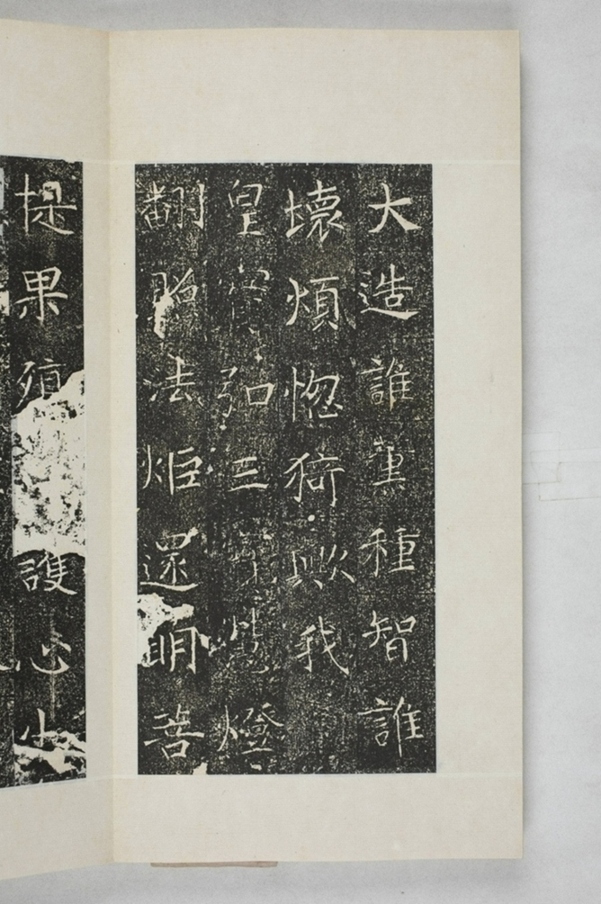 大造誰薰種智誰
壞煩惱猗歟我
皇實弘三覺燈
翻照法炬還明菩
提果殖護心